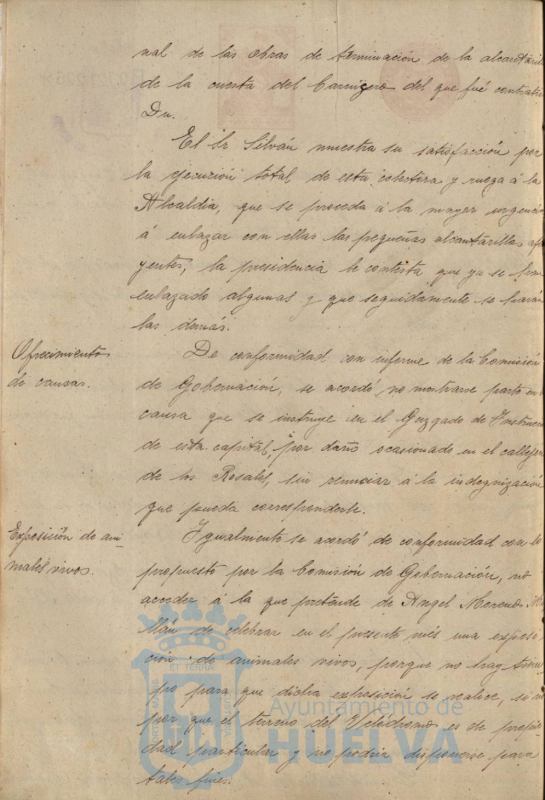 nal de las obras de terminación de la alcantarilla
de la cuesta del Carnicero del que fué contratis
Dn.
El Sr Silván muestra su satisfacción por
la ejecución total, de esta colectora y ruega á la
Alcaldía, que se proceda á la mayor urgencia
á enlazar con ellas las pequeñas alcantarillas aflu
yentes; la presidencia le contesta que ya se han
enlazado algunas y que seguidamente se harán
las demás.
Ofrecimientos
de causas.
De conformidad con informe de la Comisión
de Gobernación, se acordó no mostrarse parte en
causa que se instruye en el Juzgado de Instrucc
de esta capital, por daño ocasionado en el callejon
de los Rosales, sin renunciar á la indegnización
que pueda corresponderle.
Exposición de ani-
males vivos.
Igualmente se acordó de conformidad con lo
propuesto por la Comisión de Gobernación, no
acceder á la que pretende de Angel Moreno Mi
llán de celebrar en el presente més una exposi
ción de animales vivos, porque no hay tiem
po para que dicha exposición se realice, si no
por que el terreno del Velódromo es de propie
dad particular y no podría disponerse para
tales fines.
Ayuntamiento de
HUELVA